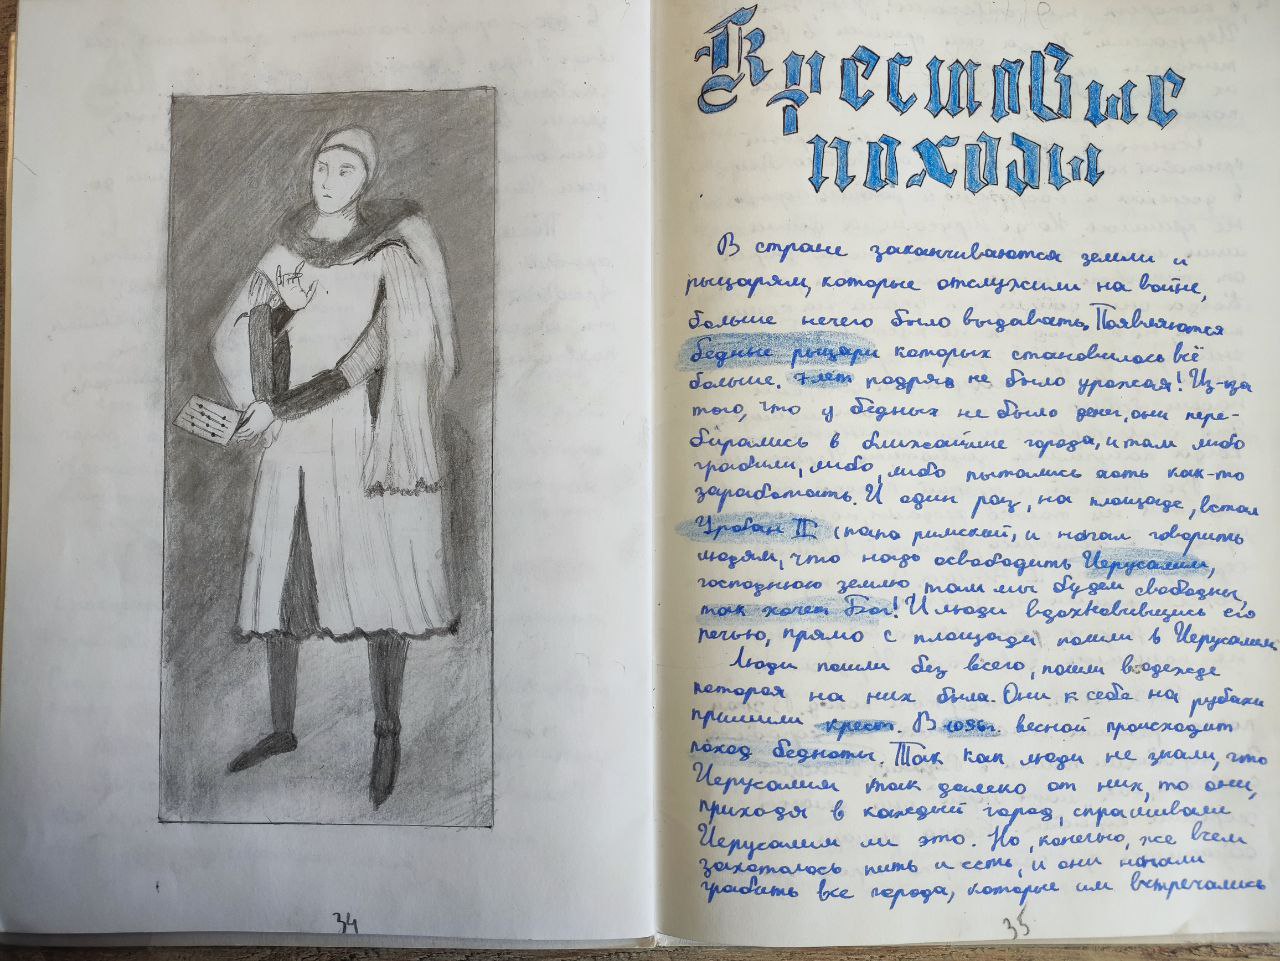 34
Крестовые
походы
В стране заканчиваются земли и
рыцарям, которые отслужили на войне,
больше нечего было выдавать. Появляются
бедные рыцари которых становилось всё
больше. 7 лет подряд не было урожая! Из-за
того, что у бедных не было денег, они пере-
бирались в ближайшие города, и там либо
грабили, либо, либо пытались хоть как-то
заработать. И один раз, на площаде, встал
Урбан II (папа римский), и начал говорить
людям, что надо освободить Иерусалим,
господнюю землю, там мы будем свободны,
так хочет Бог! И люди вдохновившись его
речью, прямо с площади пошли в Иерусалим.
Люди пошли без всего, пошли в одежде
которая на них была. Они к себе на рубахи
пришили крест. В 1096г. весной происходит
поход бедноты. Так как люди не знали, что
Иерусалим так далеко от них, то они,
приходя в каждый город, спрашивали
Иерусалим ли это. Но, конечно, же всем
захотелось пить и есть, и они начали
грабить все города, которые им встречались
35